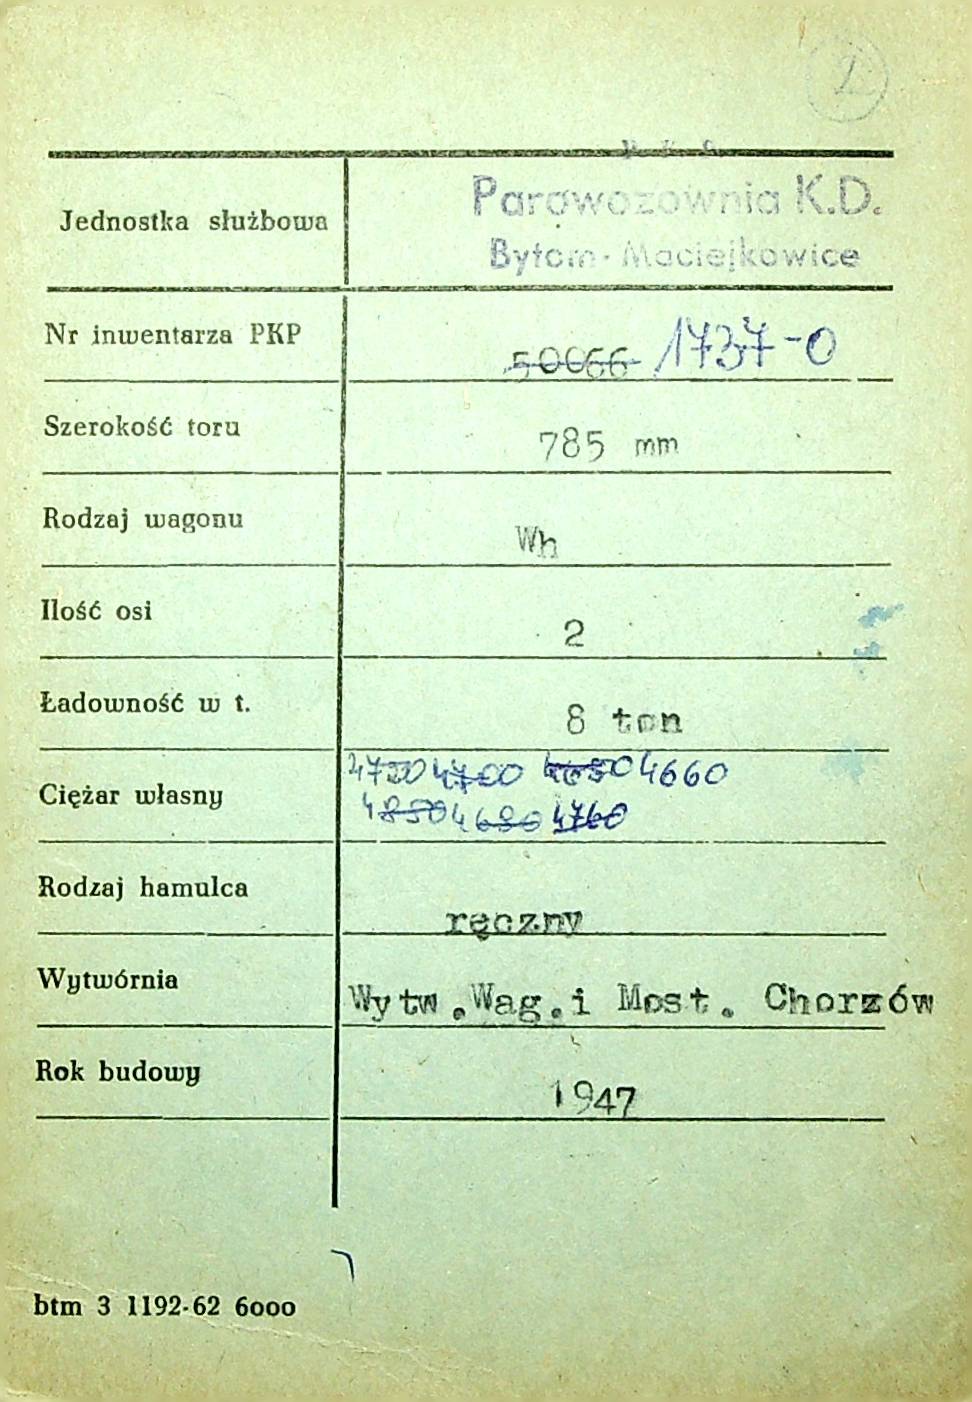 P K P
Jednostka służbowa Parowozownia K.D.
Bytom-Maciejkowice
Nr inwentarza PKP 50066 1737-0
Szerokość toru 785 mm
Rodzaj wagonu Wh
Ilość osi 2
Ładowność w t. 8 ton
4700 4660
Ciężar własny
4850 4680 4760
Rodzaj hamulca ręczny
Wytwórnia Wytw.Wag.i Most. Chorzów
Rok budowy 1947
btm 3 1192-62 6000